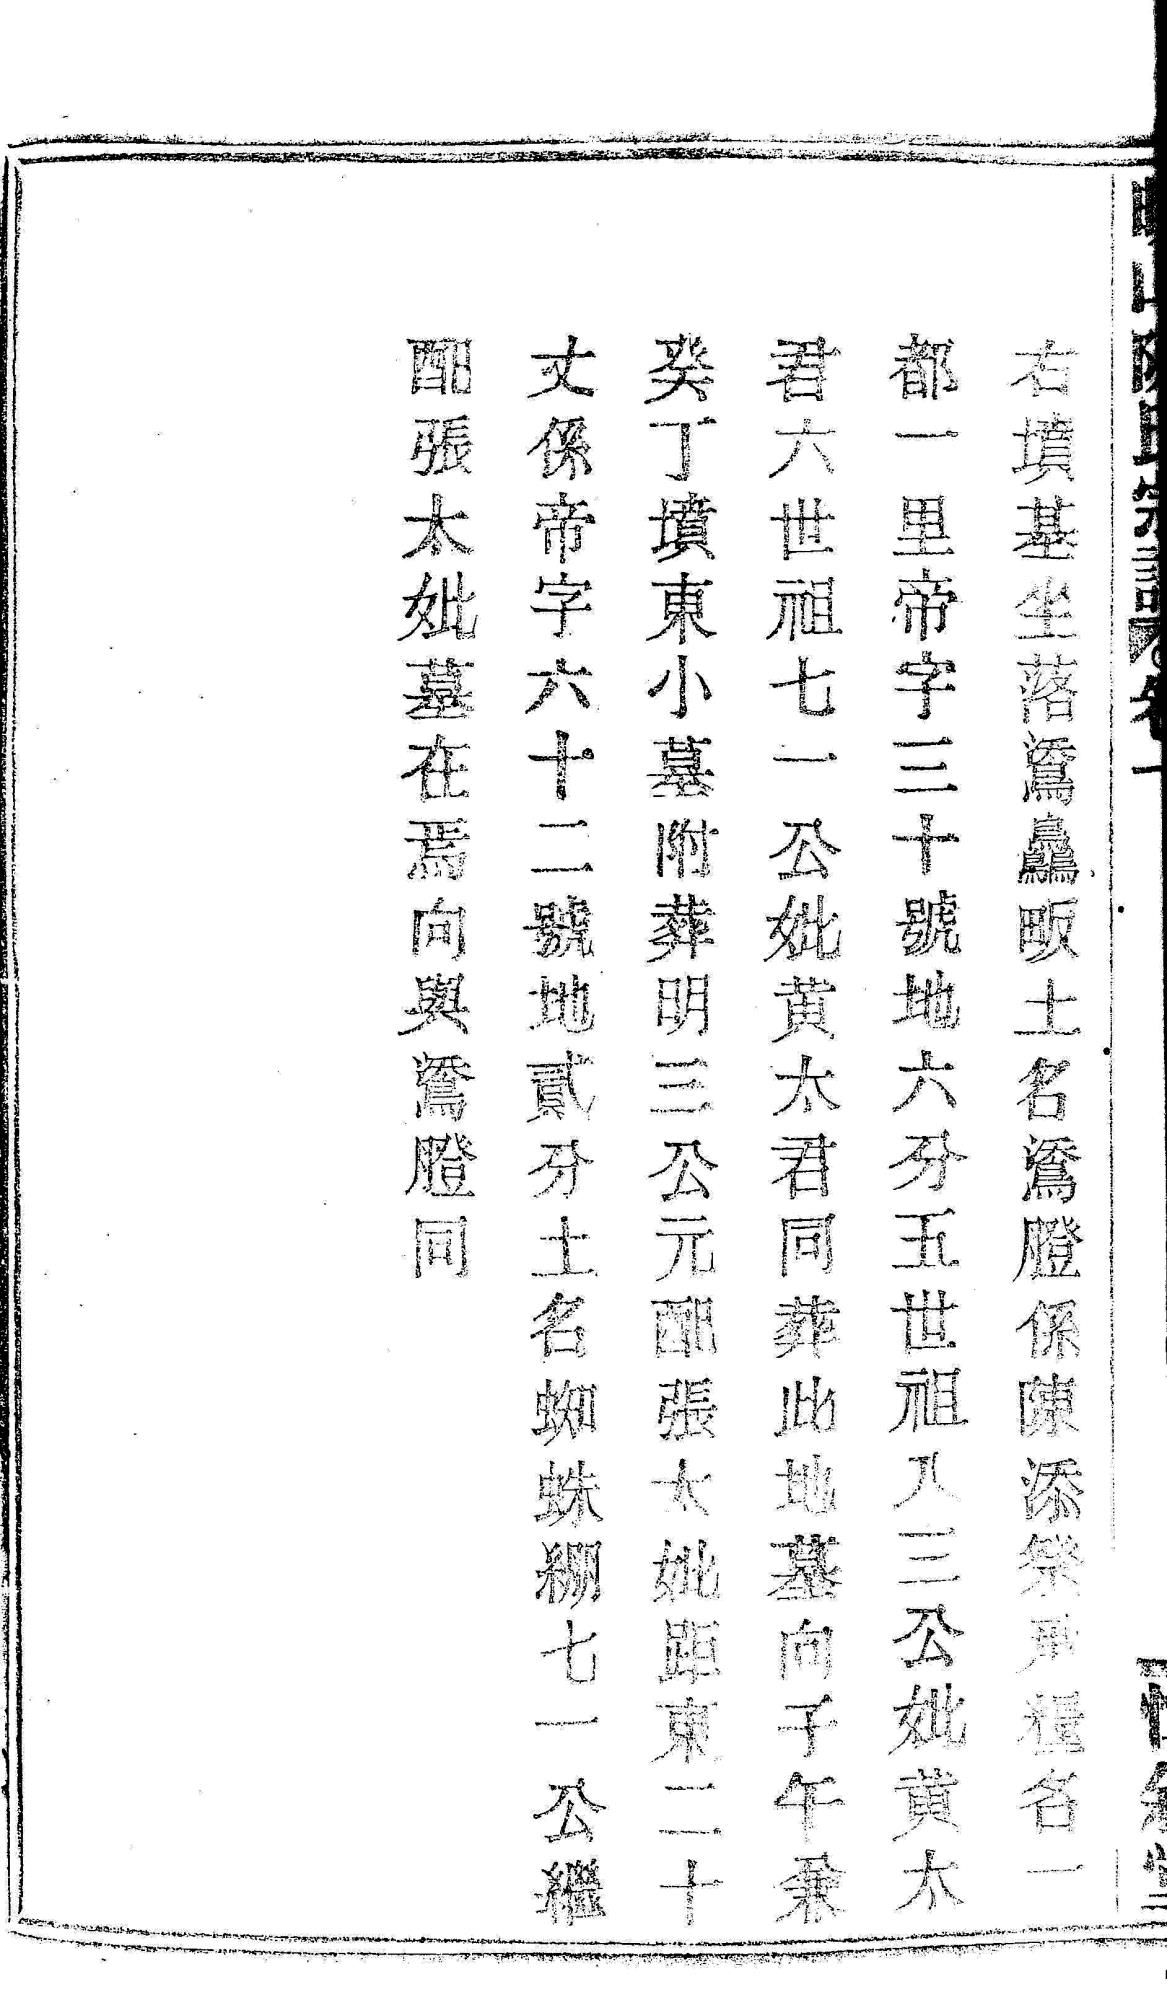 右墳基坐落鴛鱻畈土名鴛膯係陳添榮承糧名一
都一里帝字三十號地六分五世祖八三公妣黄太
君六世祖七一公妣黄太君同葬此地墓向子午兼
癸丁墳東小墓附葬明三公元配張太妣距東二十
丈係帝字六十二號地貳分土名蜘蛛綳七一公繼
配張太妣墓在焉向與鴛膯同
山陳氏宗譜 卷一